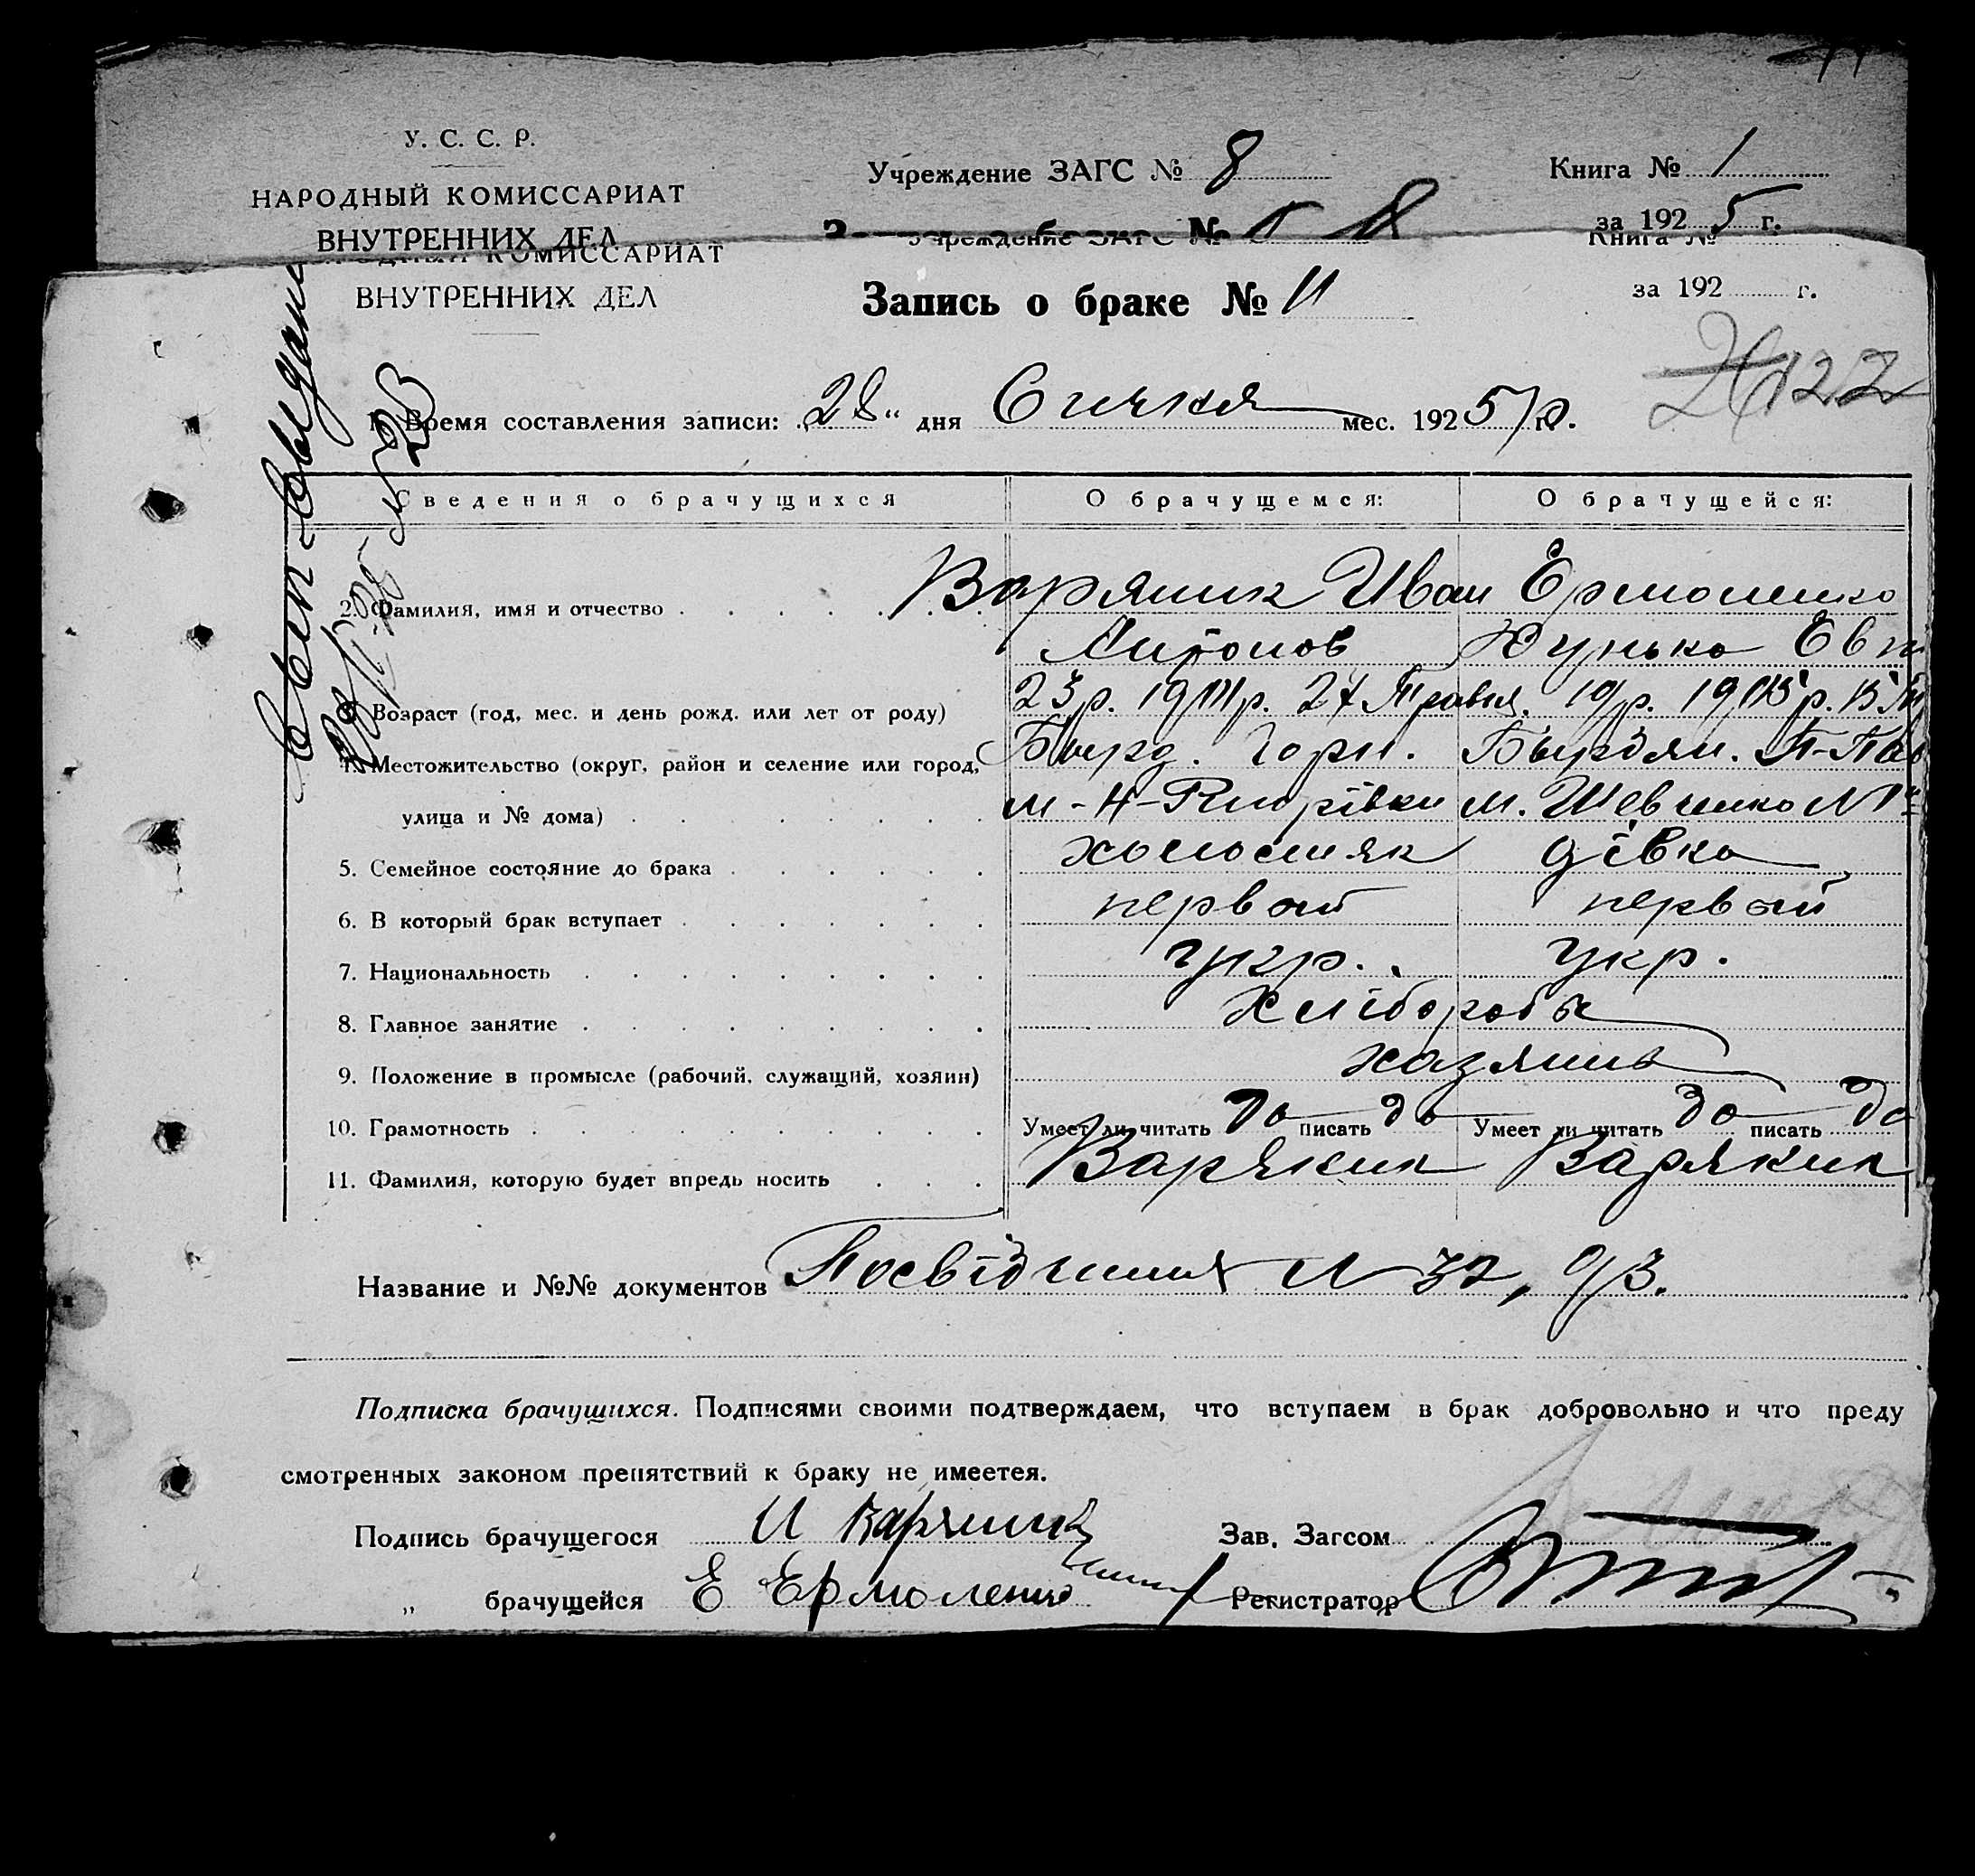 У. С. С. Р.
НАРОДНЫЙ КОМИССАРИАТ
ВНУТРЕННИХ ДЕЛ
Учреждение ЗАГС № 8
Книга № 1
за 1925 г.
КОМИССАРИАТ
ВНУТРЕННИХ ДЕЛ
Учреждение ЗАГС № 8
Книга №
за 192 г.
Запись о браке № 11
122
1. Время составления записи: 28 " дня Сичня мес. 1925 р.
Сведения о брачущихся
О брачущемся:
О брачущейся:
2. Фамилия, имя и отчество
Иван
Антонов
Ермоленко
3. Возраст (год, мес. и день рожд. или лет от роду) 23 р. 27 Травня. 19 р.
4. Местожительство (округ, район и селение или город,
улица и № дома)
5. Семейное состояние до брака холостяк дівка
6. В который брак вступает первый первый
7. Национальность укр. укр.
8. Главное занятие Хлібороби
9. Положение в промысле (рабочий, служащий, хозяин) хазяин
10. Грамотность Умеет ли читать да писать да Умеет ли читать да писать да
11. Фамилия, которую будет впредь носить
Название и №№ документов Посвідчення № 32, 93.
Подписка брачущихся. Подписями своими подтверждаем, что вступаем в брак добровольно и что преду
смотренных законом препятствий к браку не имеется.
Подпись брачущегося И
Зав. Загсом
„ брачущейся Е Ермоленко
Регистратор